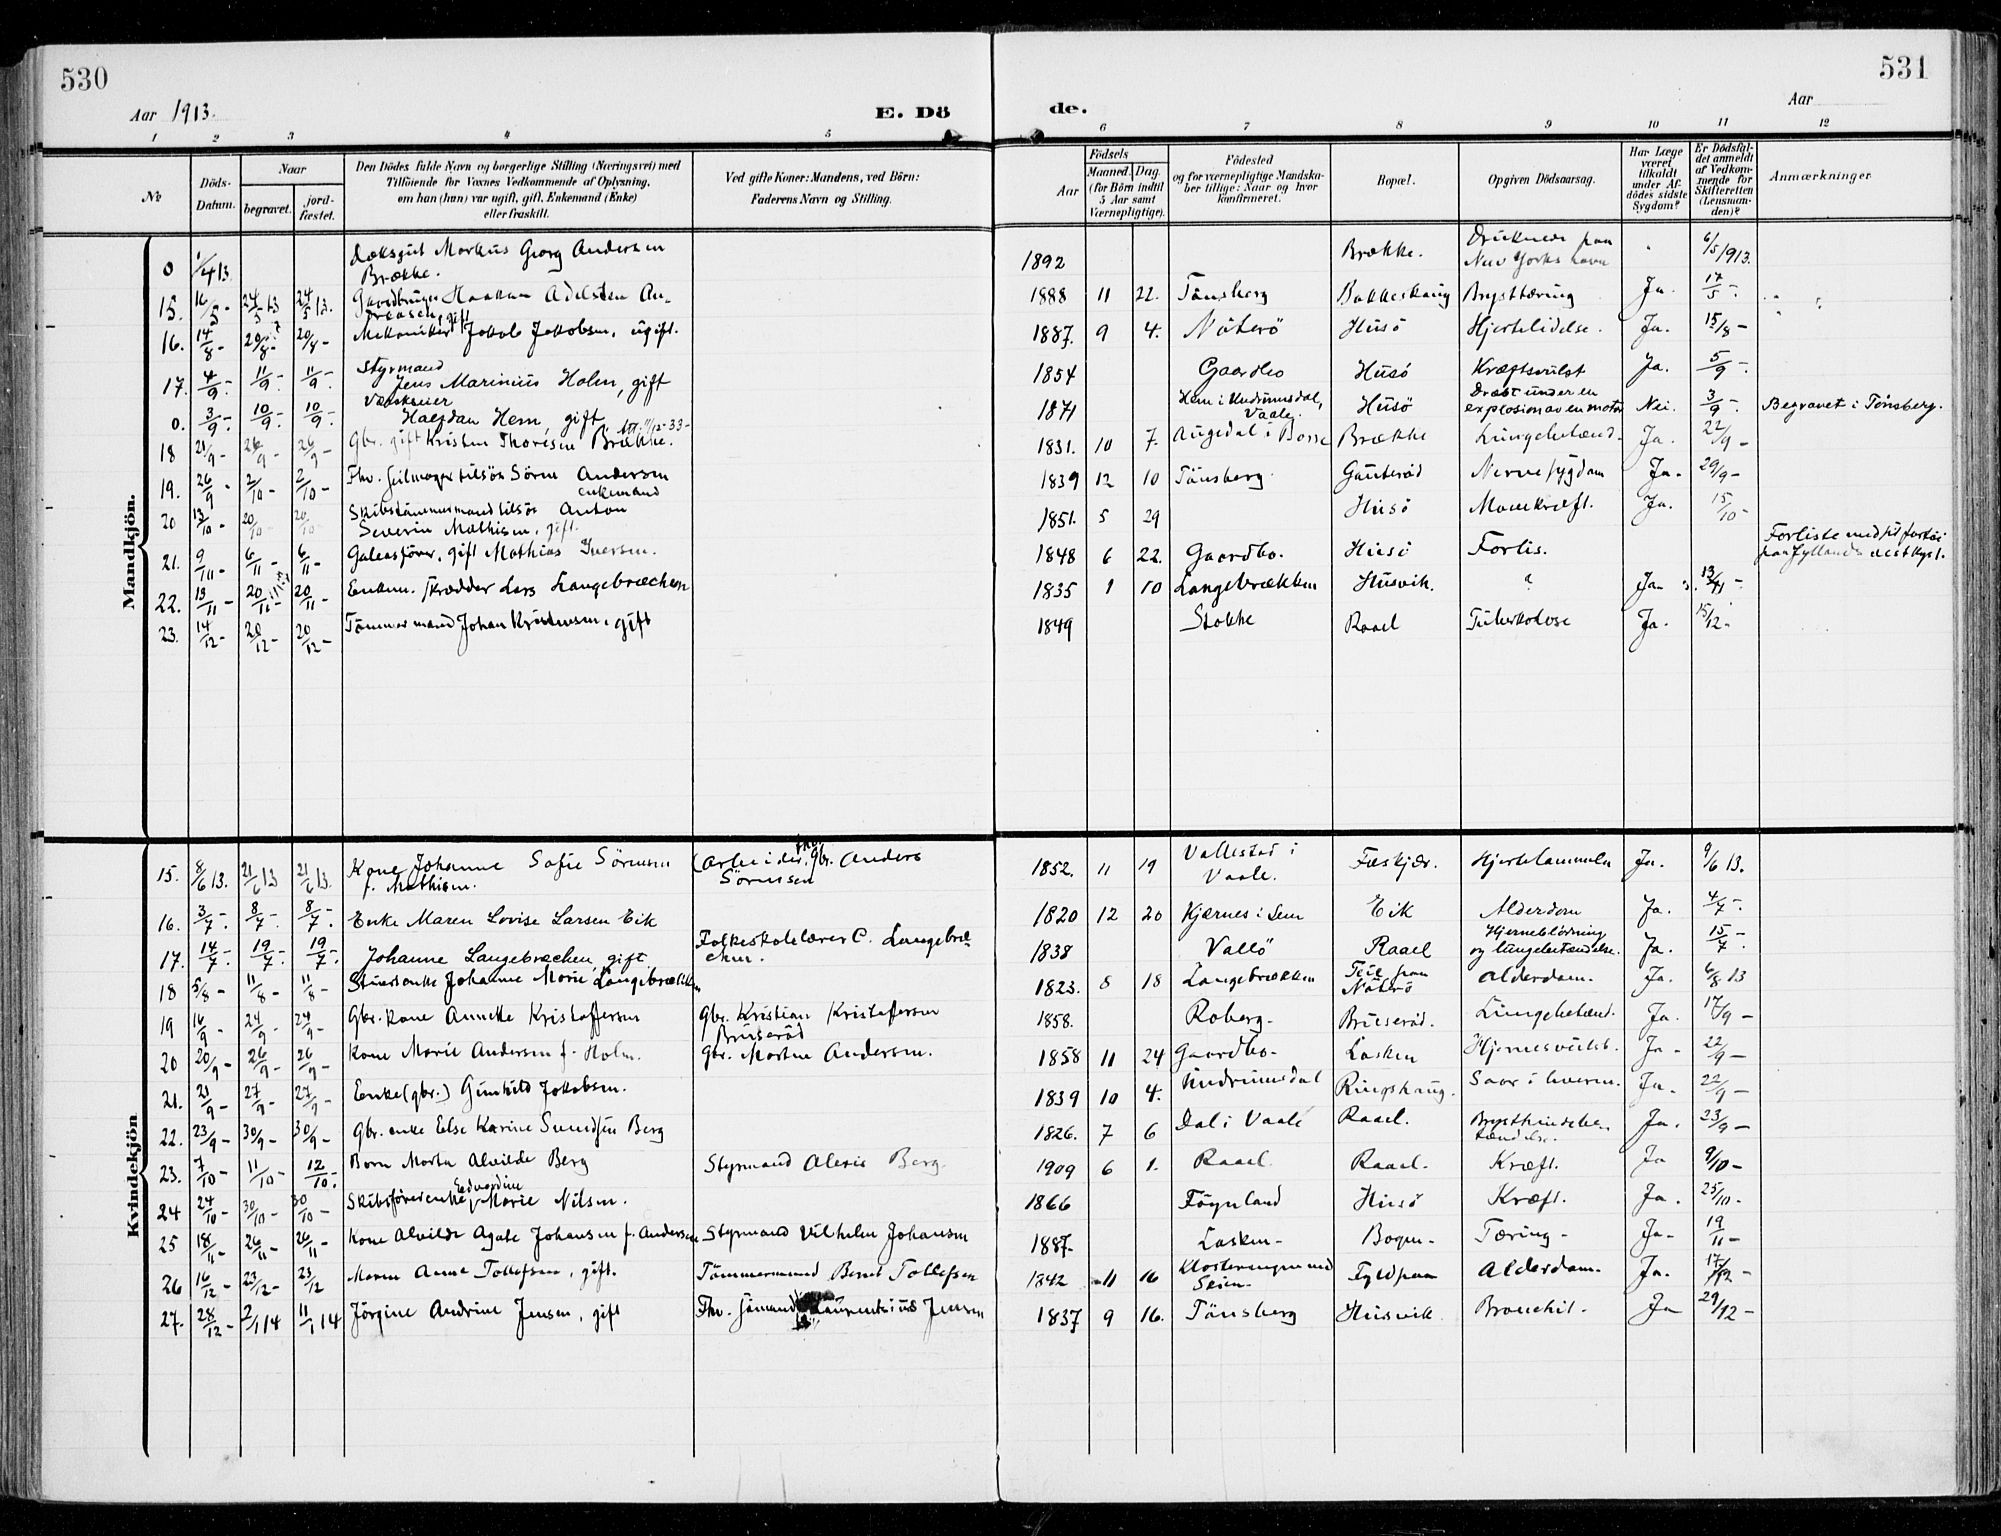 530
531
Aar 1913.
E. Dö
de.
Aar
1 2 3 4 5 6 7 8 9 10 11 12
No
Döds-Datum.
Naar
begravet.
jord-fæstet.
Den Dödes fulde Navn og borgerlige Stilling (Næringsvei) med
Tilföiende for Voxnes Vedkommende af Oplysning,
om han (hun) var ugift, gift, Enkemand (Enke)
eller fraskilt.
Ved gifte Koner: Mandens, ved Börn:
Faderens Navn og Stilling.
Födsels
Aar
Maaned. Dag.
(for Börn indtil
5 Aar samt
Værnepligtige).
Födested
og for værnepligtige Mandska-
ber tillige: Naar og hvor
konfirmeret.
Bopæl.
Opgiven Dödsaarsag.
Har Læge
været
tilkaldt
under Af-
dödes sidste
Sygdom?
Er Dödsfal-
det anmeldt
af Vedkom-
mende for
Skifteretten
(Lensman-
den)?
Anmærkninger
Mandkjön.
0 1/4 13 Dæksgut Markus Georg Andersen
Brække. 1892 Brække. Druknede paa
New Yorks havn 6/5 1913.
15. 16/5 - 24/5 13 24/5 13. Gaardbruger Haakon Adelsten An-
dreasen, gift 1888 11 22. Tönsberg Bakkeskaug Brysttæring Ja. 17/5 -
16. 14/8 - 20/8 - 20/8 - Mekaniker Jakob Jakobsen, ugift. 1887. 9 4. Nöterö Husö Hjertelidelse. Ja. 15/8 -
17. 4/9 - 11/9 - 11/9 - Styrmand
Jens Marinius Holm, gift 1854 Gaardbo Husö Kræftsvulst Ja. 5/9 -
0. 3/9 - 10/9 - 10/9 - Værkseier
Halfdan Hem, gift. Att. 11/12-33- 1871 Hem i Undrumsdal,
Vaale. Husö Dræbt under en
explosion av en motor Nei. 3/9 - Begravet i Tönsberg.
18 21/9 - 26/9 - 26/9 - Gbr. gift Kristen Thoresen Brække. 1831. 10 7. Augedal i Borre Brække Lungebetænd. Ja. 22/9 -
19. 26/9 - 2/10 - 2/10 - Fhv. Seilmager tilsös Sören Andersen
enkemand 1839 12 10 Tönsberg. Gauteröd Nervesygdom Ja. 29/9 -
20 13/10 - 20/10 - 20/10 - Skibstömmermand tilsös Anton
Severin Mathisen, gift. 1851. 5 29 Husö Mavekræft. Ja. 15/10 -
21. 9/10 - 6/11 - 6/11 - Galeasförer, gift Mathias Iversen. 1848 6 22. Gaardbo. Husö Forlis. Forliste med sit fartöi
paa Jyllands vestkyst.
22. 13/11 - 20/11 - 20/11 - Enkem. skrædder Lars Langebrækken 1835 1 10 Langebrækken Husvik. ? Ja 13/11 -
23. 14/12 - 20/12 - 20/12 - Tömmermand Johan Kristensen, gift 1849 Stokke Raael Tuberkolose Ja. 15/12 -
Kvindekjön
15. 8/6 13. 21/6 13 21/6 13. Kone Johanne Sofie Sörensen
f. Mathisen. (Arbeider, fhv. Gbr. Anders
Sörensen 1852. 11 19 Vallestad i
Vaale. Fæskjær. Hjertelammelse Ja. 9/6 13.
16. 3/7 - 8/7 - 8/7 - Enke Maren Lovise Larsen Eik 1820 12 20 Kjærnes i Sem Eik Alderdom Ja. 4/7 -
17. 14/7 - 19/7 - 19/7 - Johanne Langebrækken, gift Folkeskolelærer C. Langebræ-
kken. 1838 Vallö Raael Hjerneblödning
og lungebetændelse. Ja. 15/7 -
18 5/8 - 11/8 - 11/8 - Stuertenke Johanne Marie Langebrækken 1823. 8 18 Langebrækken Teie paa
Nöterö Alderdom. Ja. 6/8 13
19 16/9 - 24/9 - 24/9 - Gbr. kone Anneke Kristoffersen Gbr. Kristian Kristoffersen
Bruseröd 1858. Roberg. Bruseröd. Lungebetænd. Ja. 17/9 -
20 20/9 - 26/9 - 26/9 - Kone Marie Andersen f. Holm. Gbr. Morten Andersen. 1858 11 24 Gaardbo. Lasken Hjernesvulst. Ja - 22/9 -
21. 21/9 - 27/9 - 27/9 - Enke (gbr.) Gunhild Jakobsen. 1839 10 4. Undrumsdal Ringshaug. Saar i leveren. Ja. 22/9 -
22. 23/9 - 30/9 - 30/9 - Gbr. enke Else Karine Sundsjen Berg 1826. 7 6 Dal i Vaale Raael. Brysthindebe-
tændelse. Ja. 23/9 -
23. 7/10 - 11/10 - 12/10. Barn Marta Alvilde Berg Styrmand Alexis Berg. 1909 6 1. Raael. Raael. Kræft. Ja 9/10 -
24 24/10 - 30/10 - 30/10 - Skibsförerenke Edvardine Marie Nilsen. 1866 Föynland Husö Kræft. Ja. 25/10 -
25 18/11 - 26/11 - 26/11 - Kone Alvilde Agate Johansen f. Andersen Styrmand Vilhelm Johansen 1887- Lasken- Bogen- Tæring - Ja- 19/11 -
26 16/12 - 23/12 - 23/12 Maren Anne Tollefsen, gift. Tömmermand Bernt Tollefsen 1842 11 16 Klosterengen ved
Skien. Fyldpaa Alderdom. Ja. 17/12 -
27. 28/12 - 2/1 14 11/1 14 Jörgine Andrine Jensen, gift Fhv. sjömand Laurentsius Jensen 1837 9 16. Tönsberg Husvik Bronchit. Ja 29/12 -